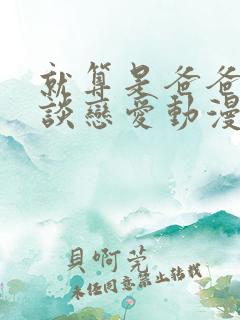 就算是爸爸
談戀愛動漫
貝啊莞
未經同意禁止轉載